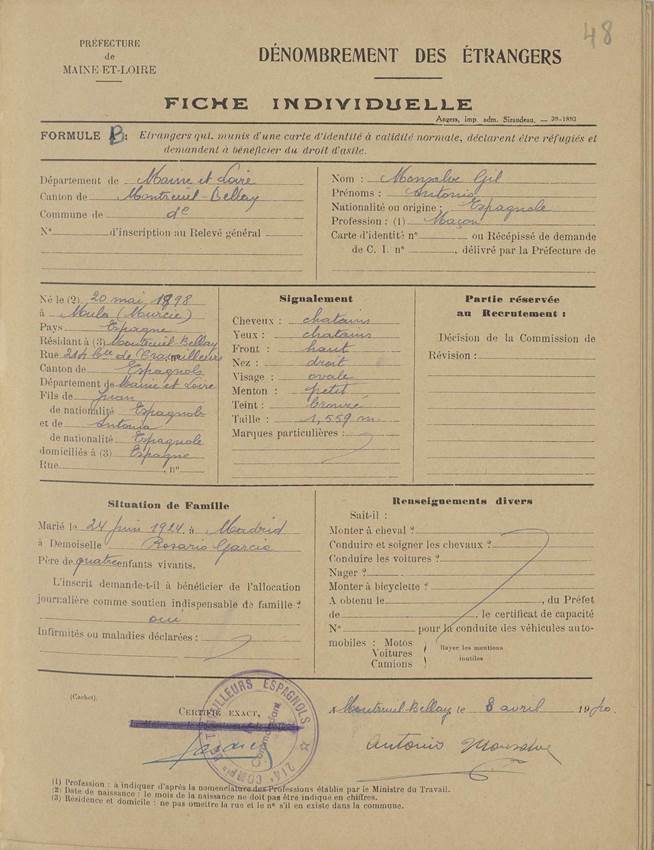 48
PRÉFECTURE
de
MAINE-ET-LOIRE
DÉNOMBREMENT DES ÉTRANGERS
FICHE INDIVIDUELLE
Angers, imp. adm. Siraudeau. — 39-1893
FORMULE B : Etrangers qui, munis d'une carte d'identité à validité normale, déclarent être réfugiés et
demandent à bénéficier du droit d'asile.
Département de Maine et Loire
Canton de Montreuil-Bellay
Commune de dº
N° d'inscription au Relevé général
Nom : Monsalve Gil
Prénoms : Antonio
Nationalité ou origine : Espagnole
Profession : (1) Maçon
Carte d'identité n° ou Récépissé de demande
de C. I. n° , délivré par la Préfecture de
Né le (2) 20 mai 1898
à Mula (Murcie)
Pays Espagne
Résidant à (3) Montreuil-Bellay
Rue 214 Cie de Travailleurs
Canton de Espagnols
Département de Maine et Loire
Fils de Juan
de nationalité Espagnole
et de Antonia
de nationalité Espagnole
domiciliés à (3) Espagne
Rue , n°
Signalement
Cheveux : chatains
Yeux : chatains
Front : haut
Nez : droit
Visage : ovale
Menton : petit
Teint : bronzé
Taille : 1,559 m.
Marques particulières :
Partie réservée
au Recrutement :
Décision de la Commission de
Révision :
Situation de Famille
Marié le 24 juin 1924 à Madrid
à Demoiselle Rosario Garcia
Père de quatre enfants vivants.
L'inscrit demande-t-il à bénéficier de l'allocation
journalière comme soutien indispensable de famille ?
oui
Infirmités ou maladies déclarées :
Renseignements divers
Sait-il :
Monter à cheval ?
Conduire et soigner les chevaux ?
Conduire les voitures ?
Nager ?
Monter à bicyclette ?
A obtenu le , du Préfet
de , le certificat de capacité
N° pour la conduite des véhicules auto-
mobiles : Motos
Voitures
Camions
Rayer les mentions
inutiles
(Cachet)
CERTIFIÉ EXACT,
214e COMPie DE TRAVAILLEURS ESPAGNOLS
Commandant
A Montreuil-Bellay le 8 avril 1940.
Antonio Monsalve
(1) Profession : à indiquer d'après la nomenclature des Professions établies par le Ministre du Travail.
(2) Date de naissance : le mois de la naissance ne doit pas être indiqué en chiffres.
(3) Résidence et domicile : ne pas omettre la rue et le n° s'il en existe dans la commune.